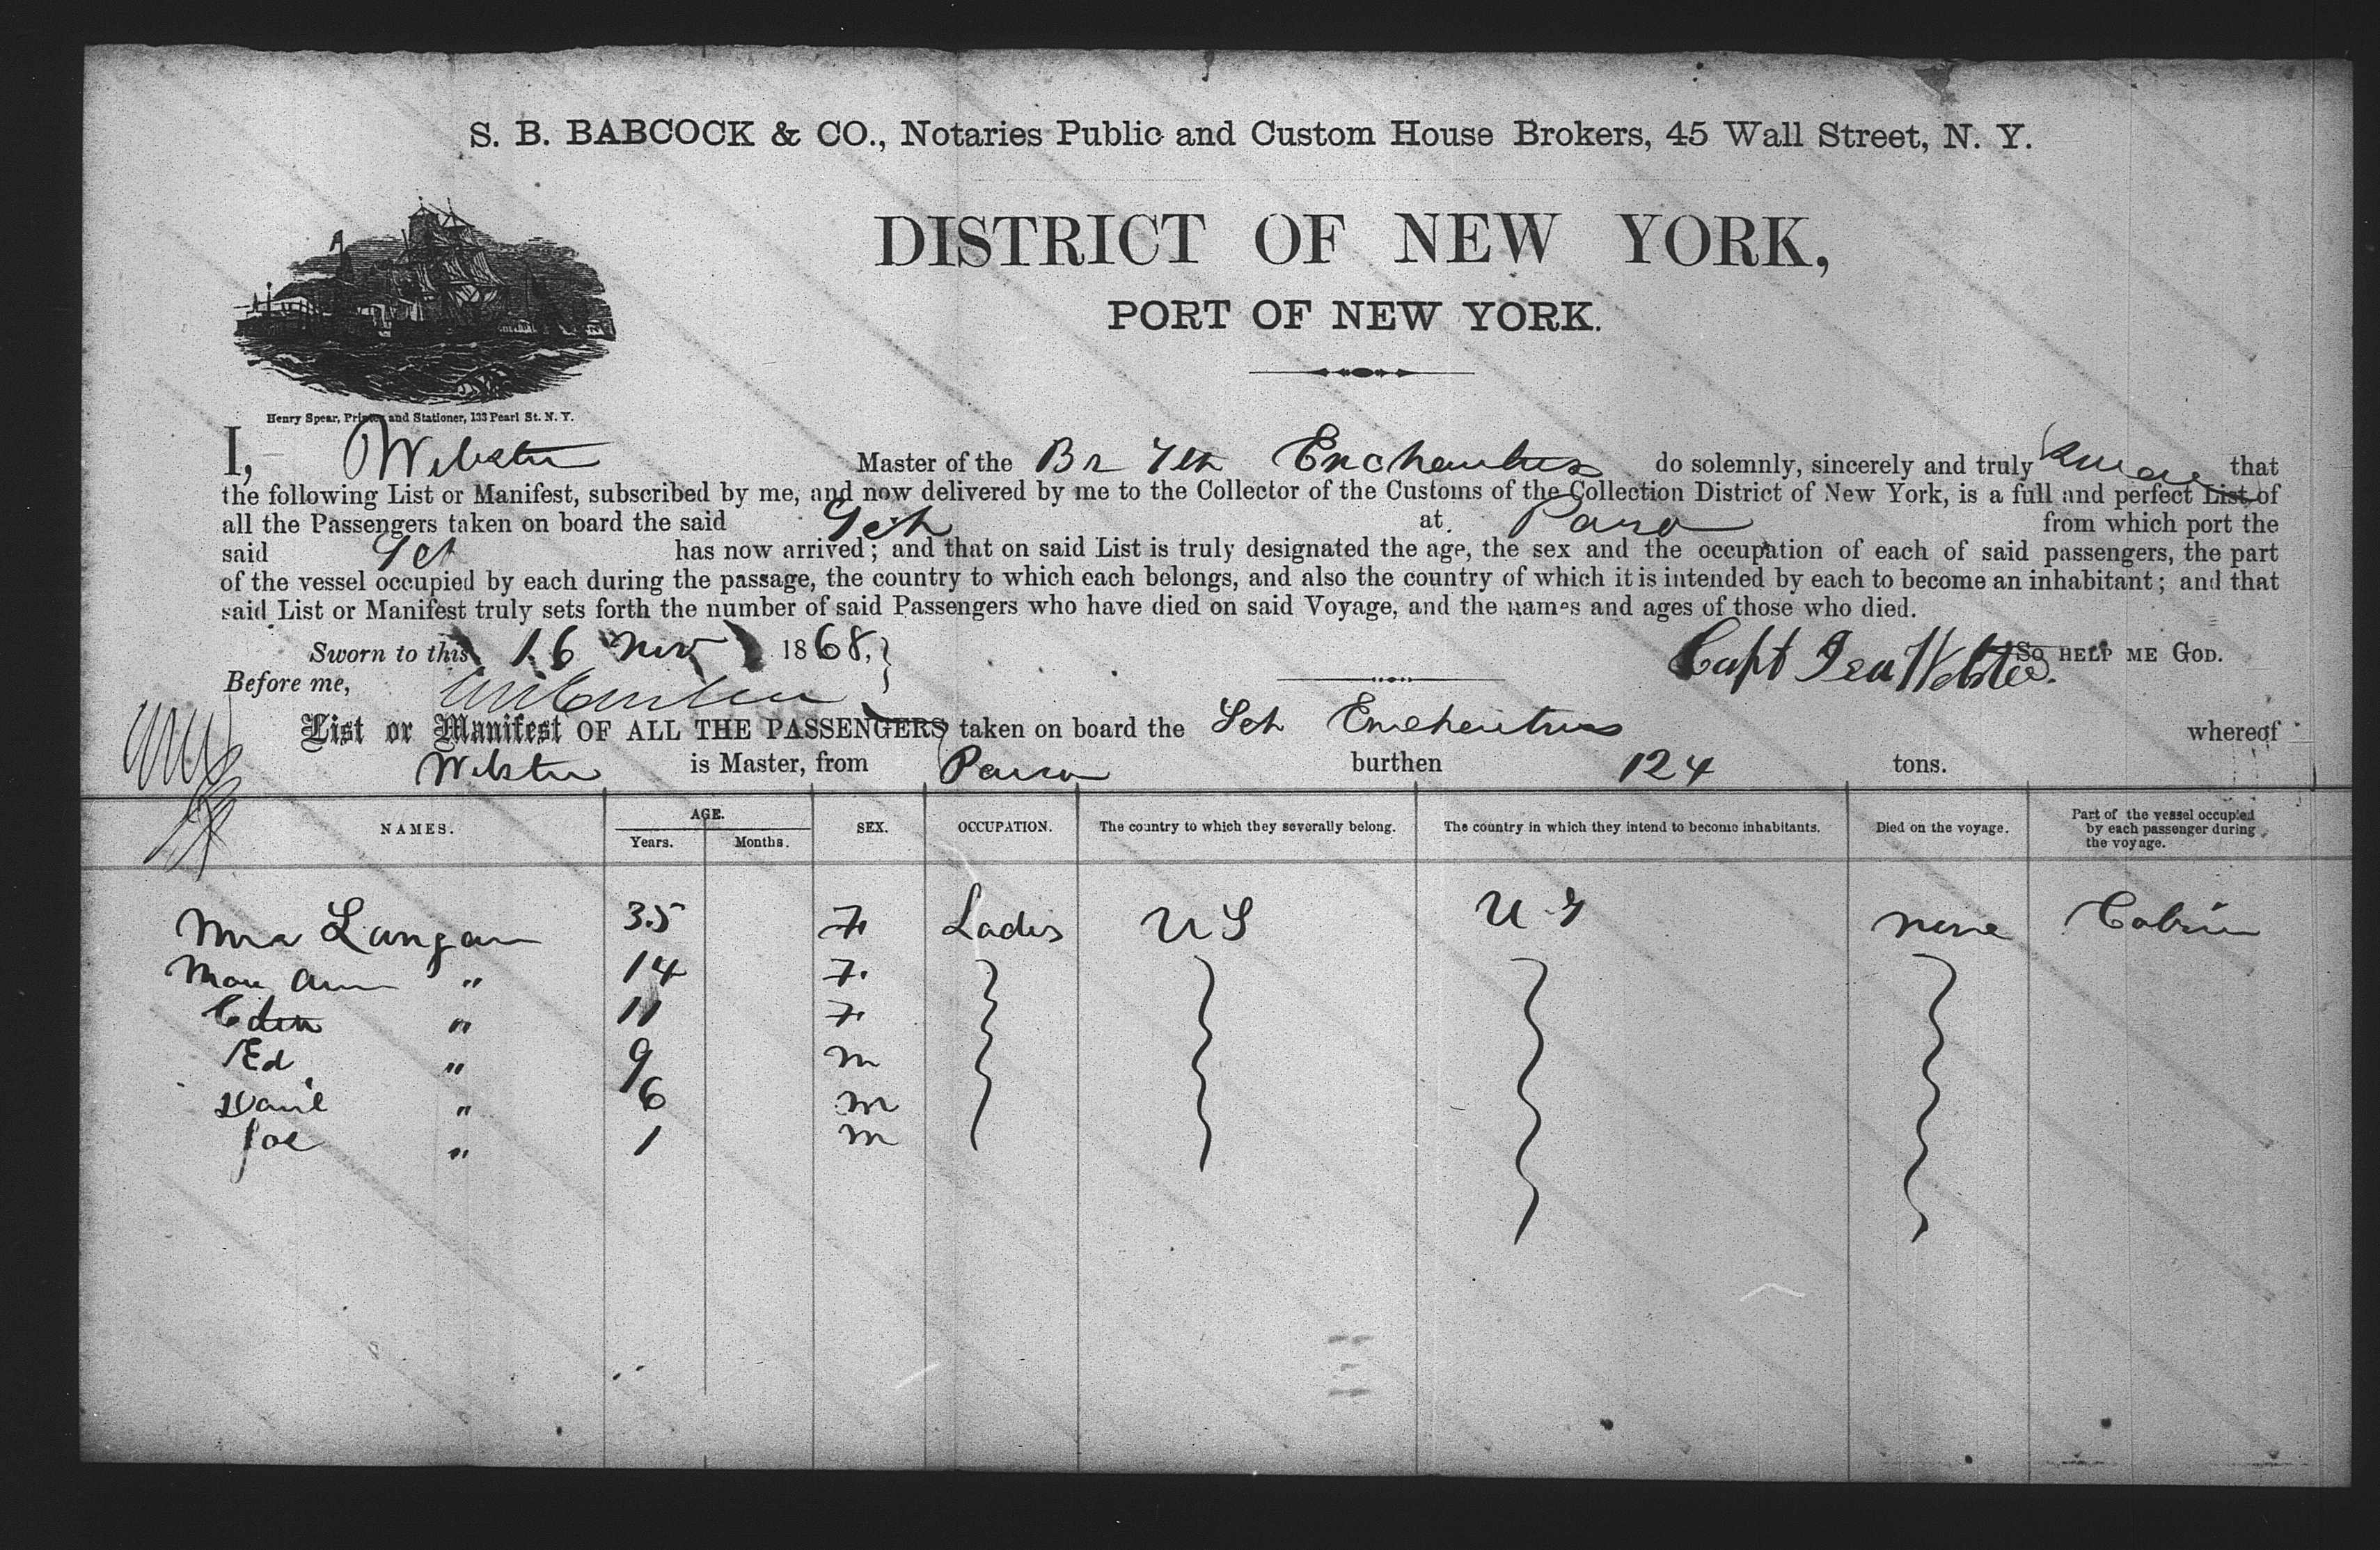 S. B. BABCOCK & CO., Notaries Public and Custom House Brokers, 45 Wall Street, N. Y.
DISTRICT OF NEW YORK,
PORT OF NEW YORK.
Henry Spear, Printer and Stationer, 133 Pearl St. N. Y.
I, Webster Master of the Br Sch Enchantress do solemnly, sincerely and truly swear that
the following List or Manifest, subscribed by me, and now delivered by me to the Collector of the Customs of the Collection District of New York, is a full and perfect List of
all the Passengers taken on board the said Sch at Para from which port the
said Sch has now arrived; and that on said List is truly designated the age, the sex and the occupation of each of said passengers, the part
of the vessel occupied by each during the passage, the country to which each belongs, and also the country of which it is intended by each to become an inhabitant; and that
said List or Manifest truly sets forth the number of said Passengers who have died on said Voyage, and the names and ages of those who died.
Sworn to this 16 Nov 1868, Capt Webster So HELP ME GOD.
Before me,
List or Manifest OF ALL THE PASSENGERS taken on board the Sch Enchantress whereof
Webster is Master, from Para burthen 124 tons.
NAMES. AGE. Years. Months. SEX. OCCUPATION. The country to which they severally belong. The country in which they intend to become inhabitants. Died on the voyage. Part of the vessel occupied by each passenger during the voyage.
Mrs Langan 35 F Ladies U S U S none Cabin
Mary Ann " 14 F.
" 11 F
Ed " 9 m
" 6 m
Joe " 1 m